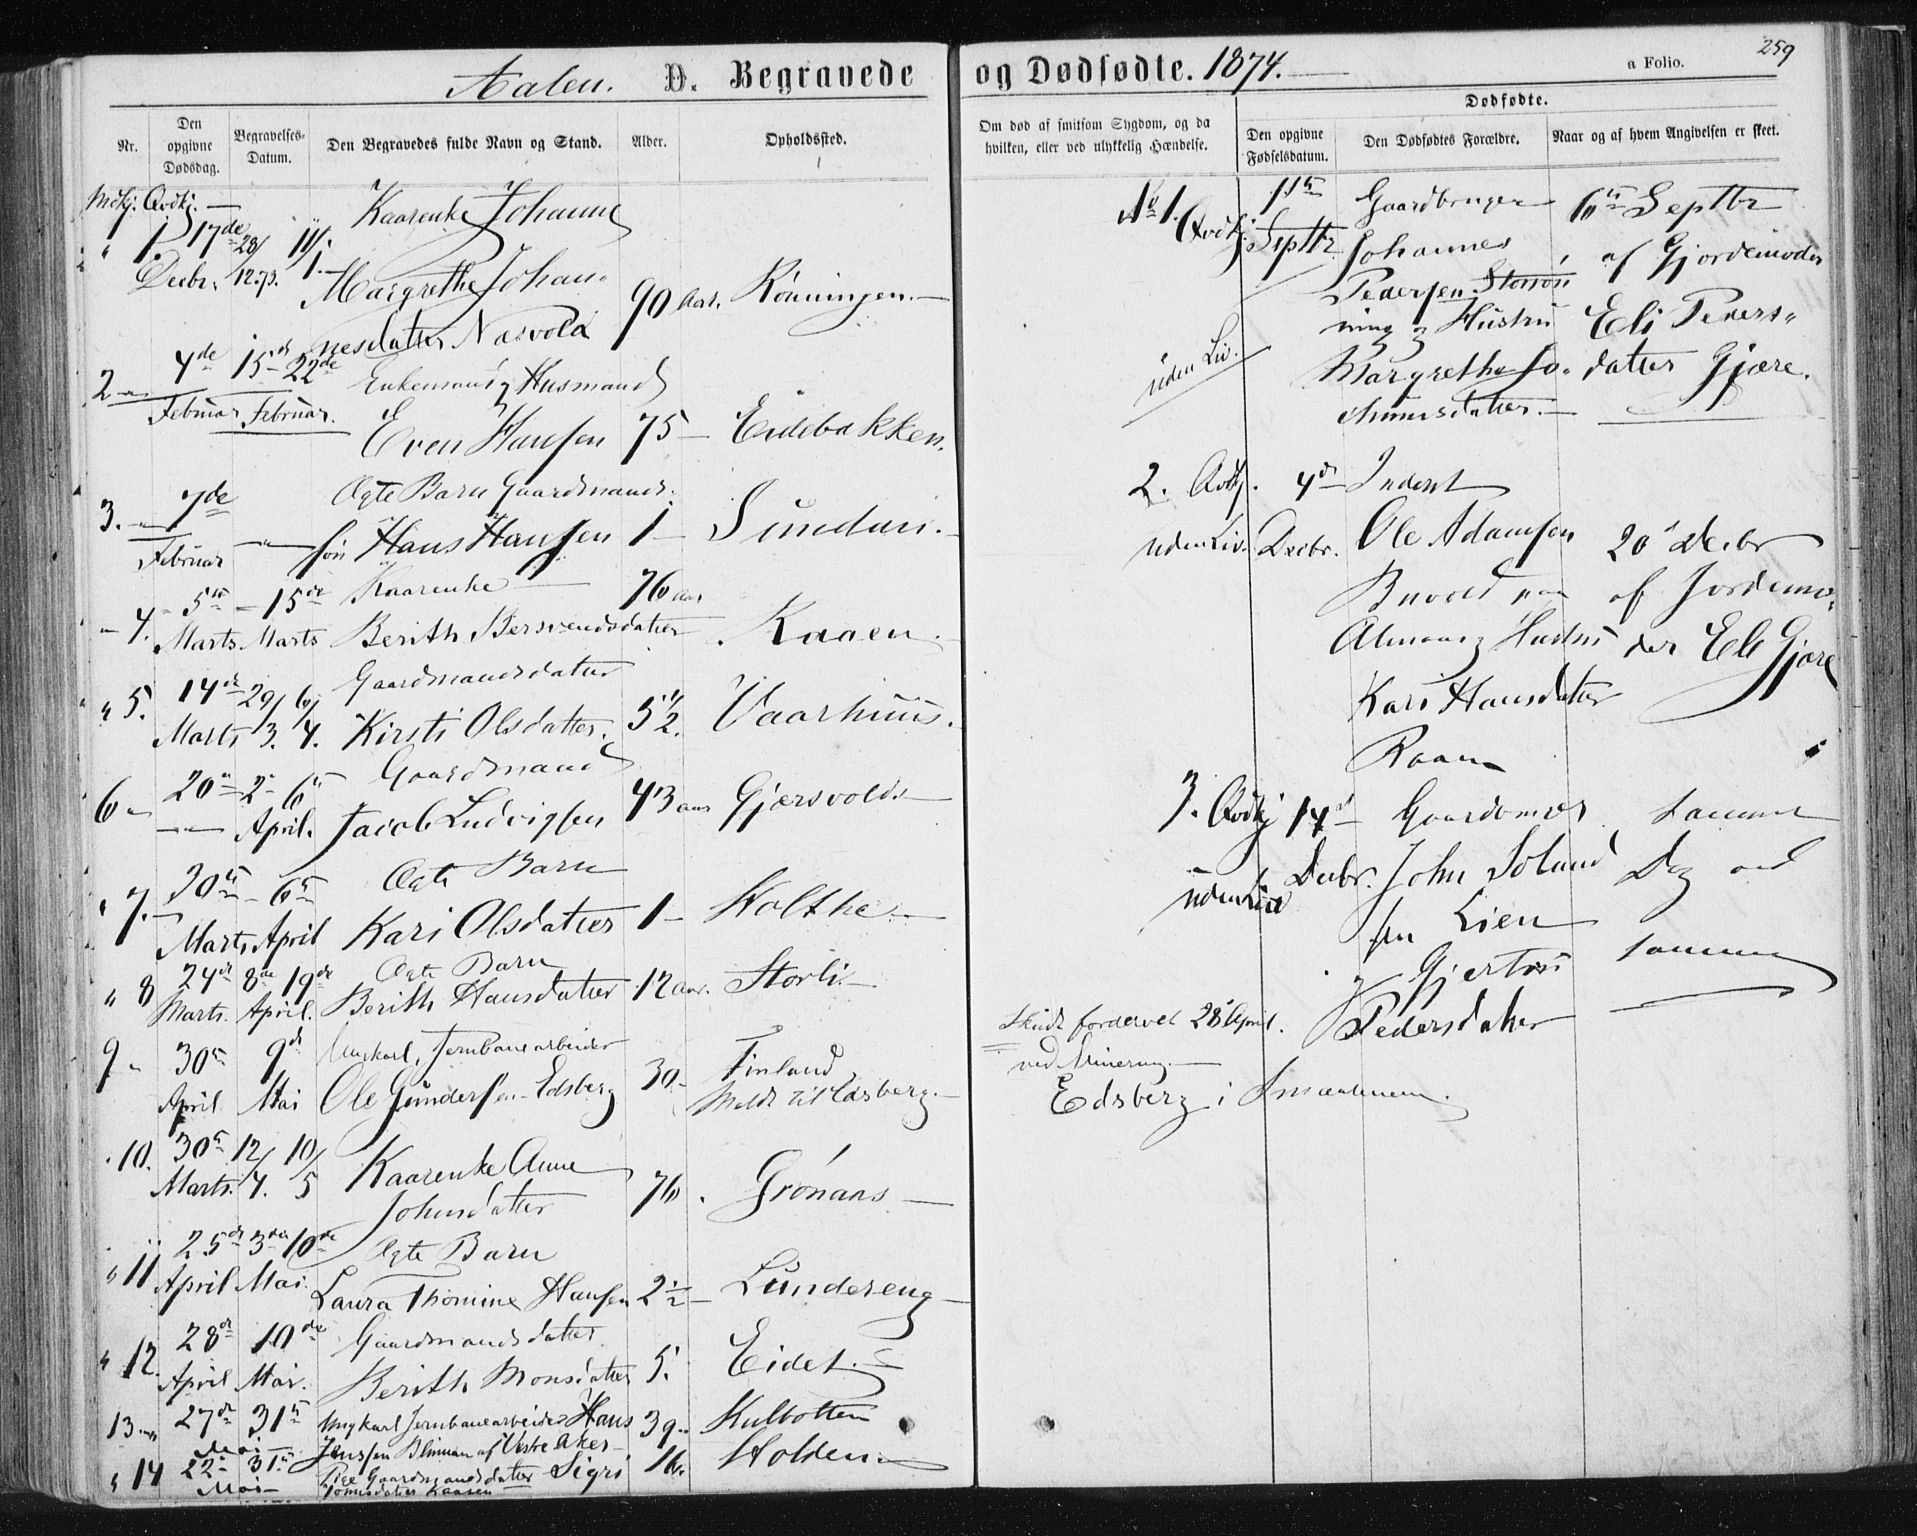 Aalen. D. Begravede
Nr.
Den opgivne Dødsdag.
Begravelses-Datum.
Den Begravedes fulde Navn og Stand.
Alder.
Opholdssted.
Kaarenke Johanne
1. 17de 28/ 11/
Decbr. 12.73. 1.
Margrethe Johan-
90 Aar. Rønningen.
nesdatter Næsvold
4de 15de 22de
2 Enkemand og Husmand
Februar Februar.
Even Hansen 75 Eidebakken.
Ægte Barn Gaardmands-
3. 7de
Februar søn Hans Hansen 1
Kaarenke
4. 5te 15de 76 aar
Marts. Marts Berith Bersvendsdatter Kaaen.
Gaardmandsdatter
5. 14de 29/ 6/
Marts 3. 4. Kirsti Olsdatter. 5 1/2. Vaarhuus.
Gaardmand
6 20 2 6te
April. Jacob Ludvigsen 43 aar Gjersvold
Ægte Barn
7. 30te 6te
Marts April Kari Olsdatter 1 Holthe
Ægte Barn
8 24de 8de 19de
Marts. April. Berith Hansdatter 12 aar. Storli
9 30te 9de Ungkarl, Jernbanearbeider
April Mai Ole Gundersen Edsberg 30. Finland
Meldt til Edsberg.
10. 30te 12/ 10/
Marts. 4. 5 Kaarenke Anne
Johnsdatter 76. Grønaas
25de 3die 10de Ægte Barn
11 April Mai. Laura Thomine Hansen 2 1/2 Lundereng
28de 10de Gaardmandsdatter
12. April Mai. Berith Monsdatter 5. Eidet.
13 27de 31te Ungkarl Jernbanearbeider Hans 39 Kulbotten
Mai Jenssen af Vestre Aker
14 22 31te Pige Gaardmandsdatter Sigri 16. Holden
Mai
og Dødfødte. 1874.
a Folio. 259
Om død af smitsom Sygdom, og da hvilken, eller ved ulykkelig Hændelse.
Dødfødte.
Den opgivne Fødselsdatum.
Den Dødfødtes Forældre.
Naar og af hvem Angivelsen er skeet.
No 1. Septbr
Gaardbruger 6te Septbr
Johannes af Gjordemoder
Pedersen
ning og Hustru Eli Peders-
uden Liv.
Margrethe Jo- datter Gjære.
2. 4de Inderst
uden Liv. Decbr. Ole Adamsen 20 Decbr
af Jordemo-
og Hustru der Eli Gjære
Kari Hansdatter
Raaen
3. 14de samme
uden Liv Decbr. John Dag
sen Lien
samme
og
Pedersdatter
Skudt fordærvet 28 April.
ved Minering.
Edsberg i Smaalenene.